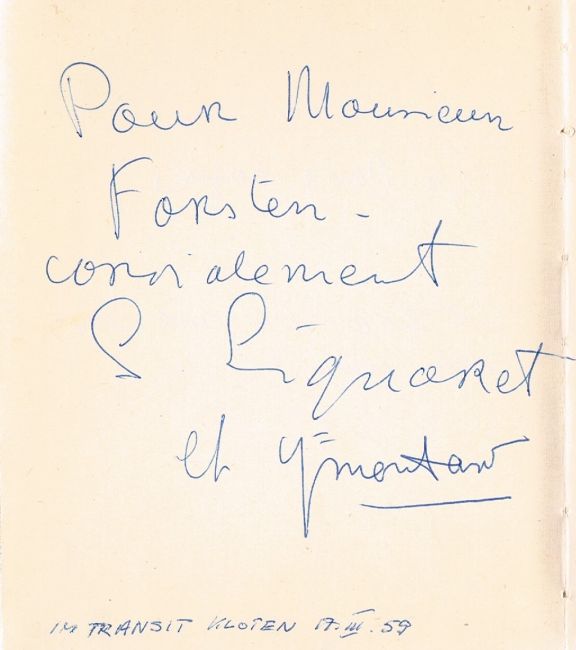 Pour Monsieur
Forster -
cordialement
S Signoret
et y montand
IM TRANSIT KLOTEN 17.III.59